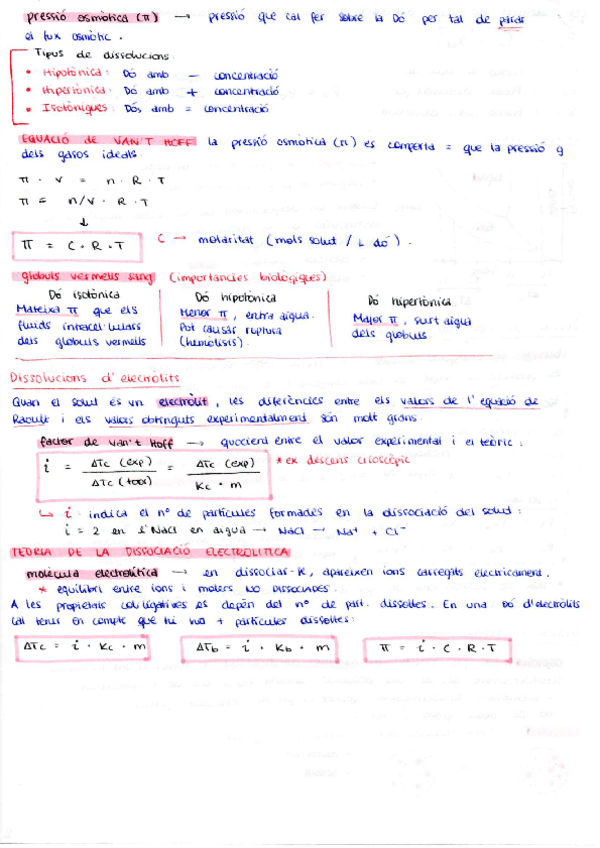 pressió osmòtica (π) → pressió que cal fer sobre la Dó per tal de parar
el flux osmòtic.
Tipus de dissolucions
• Hipotònica: Dó amb - concentració
• Hipertònica: Dó amb + concentració
• Isotòniques: Dós amb = concentració
EQUACIÓ de VAN'T HOFF la pressió osmòtica (π) es comporta = que la pressió g
dels gasos ideals.
π · V = n · R · T
π = n/V · R · T
↓
π = C · R · T C → molaritat (mols solut / L dó).
glòbuls vermells sang (importàncies biològiques)
Dó isotònica
Mateixa π que els
fluids intracel·lulars
dels glòbuls vermells
Dó hipotònica
Menor π, entra aigua.
Pot causar ruptura
(hemòlisis).
Dó hipertònica
Major π, surt aigua
dels glòbuls.
Dissolucions d'electròlits
Quan el solut és un electròlit, les diferències entre els valors de l'equació de
Raoult i els valors obtinguts experimentalment són molt grans.
factor de Van't Hoff → quocient entre el valor experimental i el teòric:
i = ΔTc (exp) / ΔTc (teor) = ΔTc (exp) / Kc · m * ex descens crioscòpic
↳ i indica el nº de partícules formades en la dissociació del solut:
i = 2 en l'NaCl en aigua → NaCl → Na⁺ + Cl⁻
TEORIA DE LA DISSOCIACIÓ ELECTROLÍTICA
molècula electrolítica → en dissociar-se, apareixen ions carregats elèctricament.
* equilibri entre ions i molècs NO DISSOCIADES.
A les propietats col·ligatives es depèn del nº de part. dissoltes. En una Dó d'electròlits
cal tenir en compte que hi ha + partícules dissoltes:
ΔTc = i · Kc · m ΔTb = i · Kb · m π = i · C · R · T